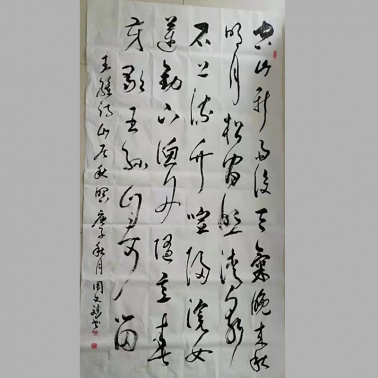 空山新雨後天氣晚來秋
明月松間照清泉
石上流竹喧歸浣女
蓮動下漁舟隨意春
芳歇王孫自可留
王維詩山居秋暝庚子秋月周文书